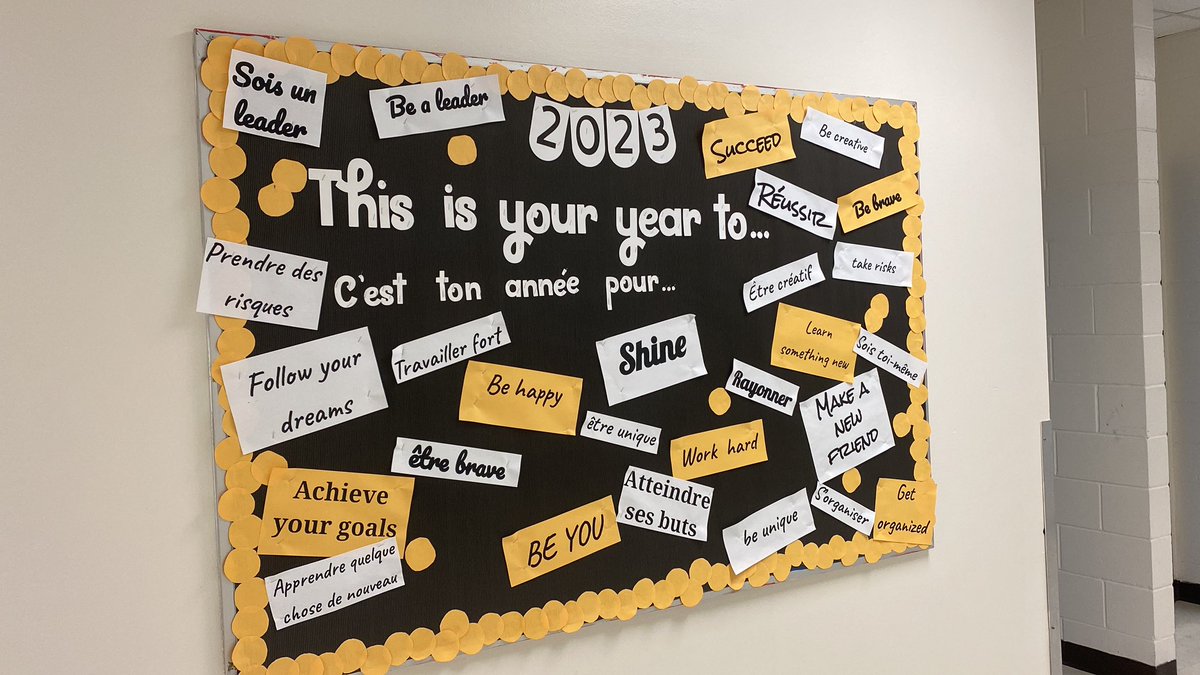 Sois un
leader
Be a leader
2023
SUCCEED
Be creative
This is your year to...
RÉUSSIR
Be brave
C'est ton année pour...
Prendre des
risques
Être créatif
take risks
Follow your
dreams
Travailler fort
Be happy
Shine
Learn
something new
Sois toi-même
Rayonner
MAKE A
NEW
FRIEND
être unique
Work hard
être brave
Achieve
your goals
Atteindre
ses buts
BE YOU
be unique
S'organiser
Get
organized
Apprendre quelque
chose de nouveau